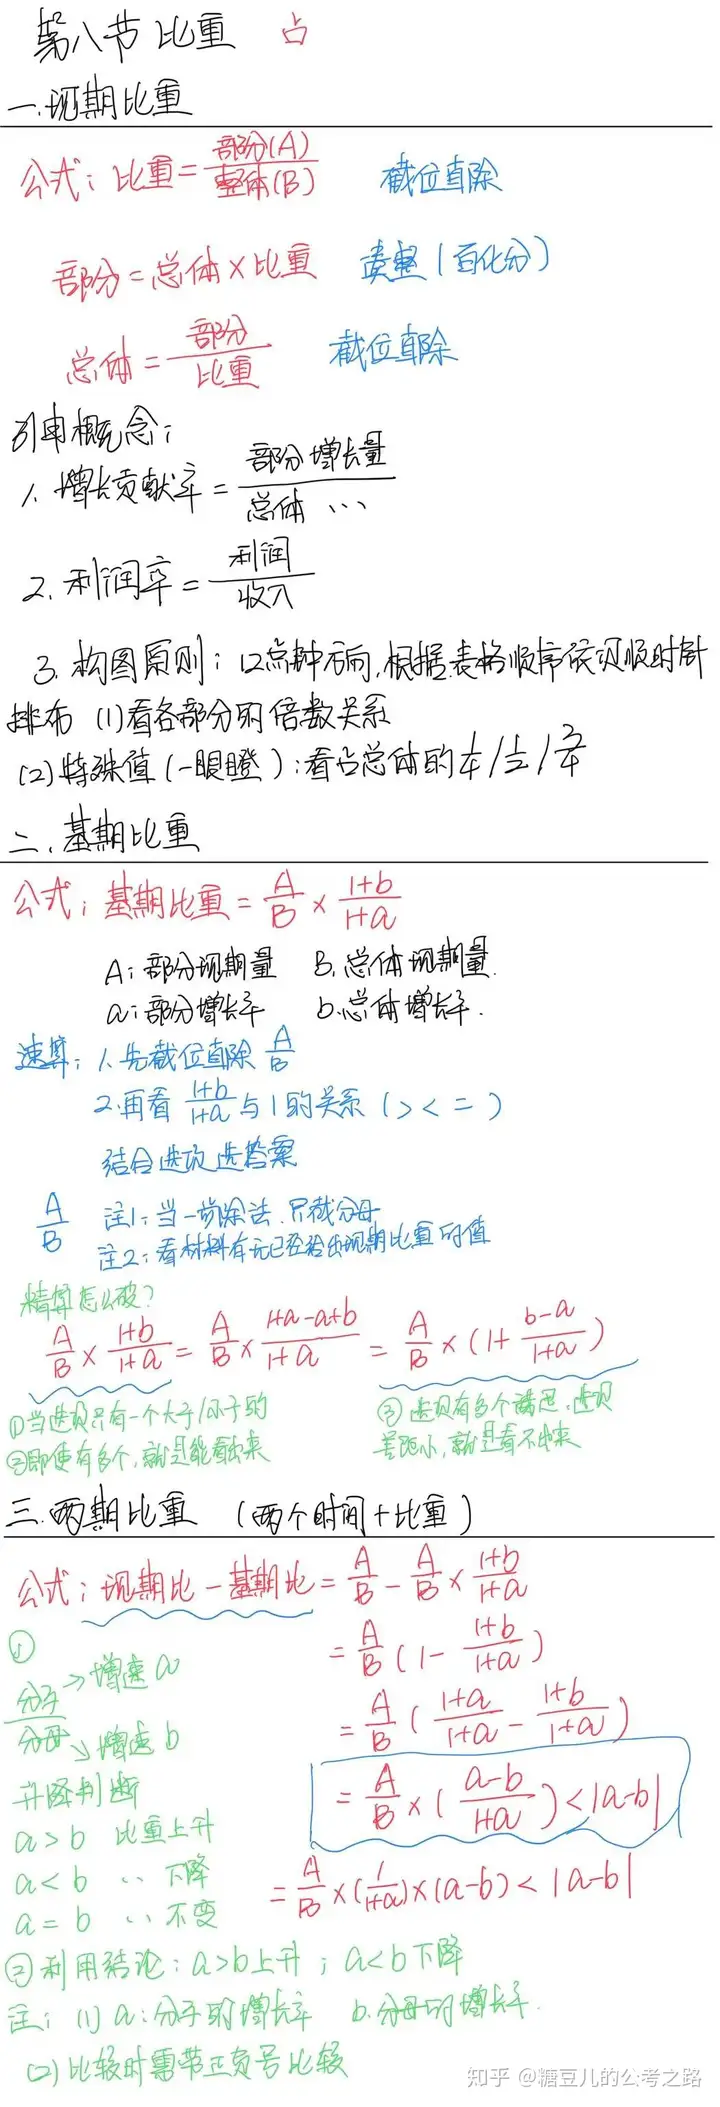 第八节 比重 占
一.现期比重
公式: 比重=部分(A)/整体(B) 截位直除
部分=总体×比重 凑整(百化分)
总体=部分/比重 截位直除
引申概念:
1. 增长贡献率=部分增长量/总体 …
2. 利润率=利润/收入
3. 构图原则: 12点钟方向,根据表格顺序依次顺时针
排布 (1)看各部分的倍数关系
(2)特殊值(一眼瞪):看占总体的
二.基期比重
公式: 基期比重=A/B×(1+b)/(1+a)
A:部分现期量 B.总体现期量.
a:部分增长率 b.总体增长率.
速算: 1.先截位直除 A/B
2.再看 (1+b)/(1+a) 与1的关系(> < =)
结合选项选答案
A/B 注1:当一步除法.只截分母
注2:看材料有无已经给出现期比重的值
精算怎么破?
A/B×(1+b)/(1+a)=A/B×(1+a-a+b)/(1+a)=A/B×(1+(b-a)/(1+a))
①当选项只有一个大于/小于的
②即使有多个,就是能看出来
③选项有多个满足.选项
差距小,就是看不出来
三.两期比重 (两个时间+比重)
公式: 现期比-基期比=A/B-A/B×(1+b)/(1+a)
=A/B(1-(1+b)/(1+a))
=A/B((1+a)/(1+a)-(1+b)/(1+a))
=A/B×((a-b)/(1+a))<|a-b|
=A/B×(1/(1+a))×(a-b)<|a-b|
①
分子→增速a
分母↘增速b
升降判断
a>b 比重上升
a<b ‥ 下降
a=b ‥ 不变
②利用结论:a>b上升;a<b下降
注: (1) a:分子的增长率 b.分母的增长率.
(2)比较时需带正负号比较
知乎 @糖豆儿的公考之路